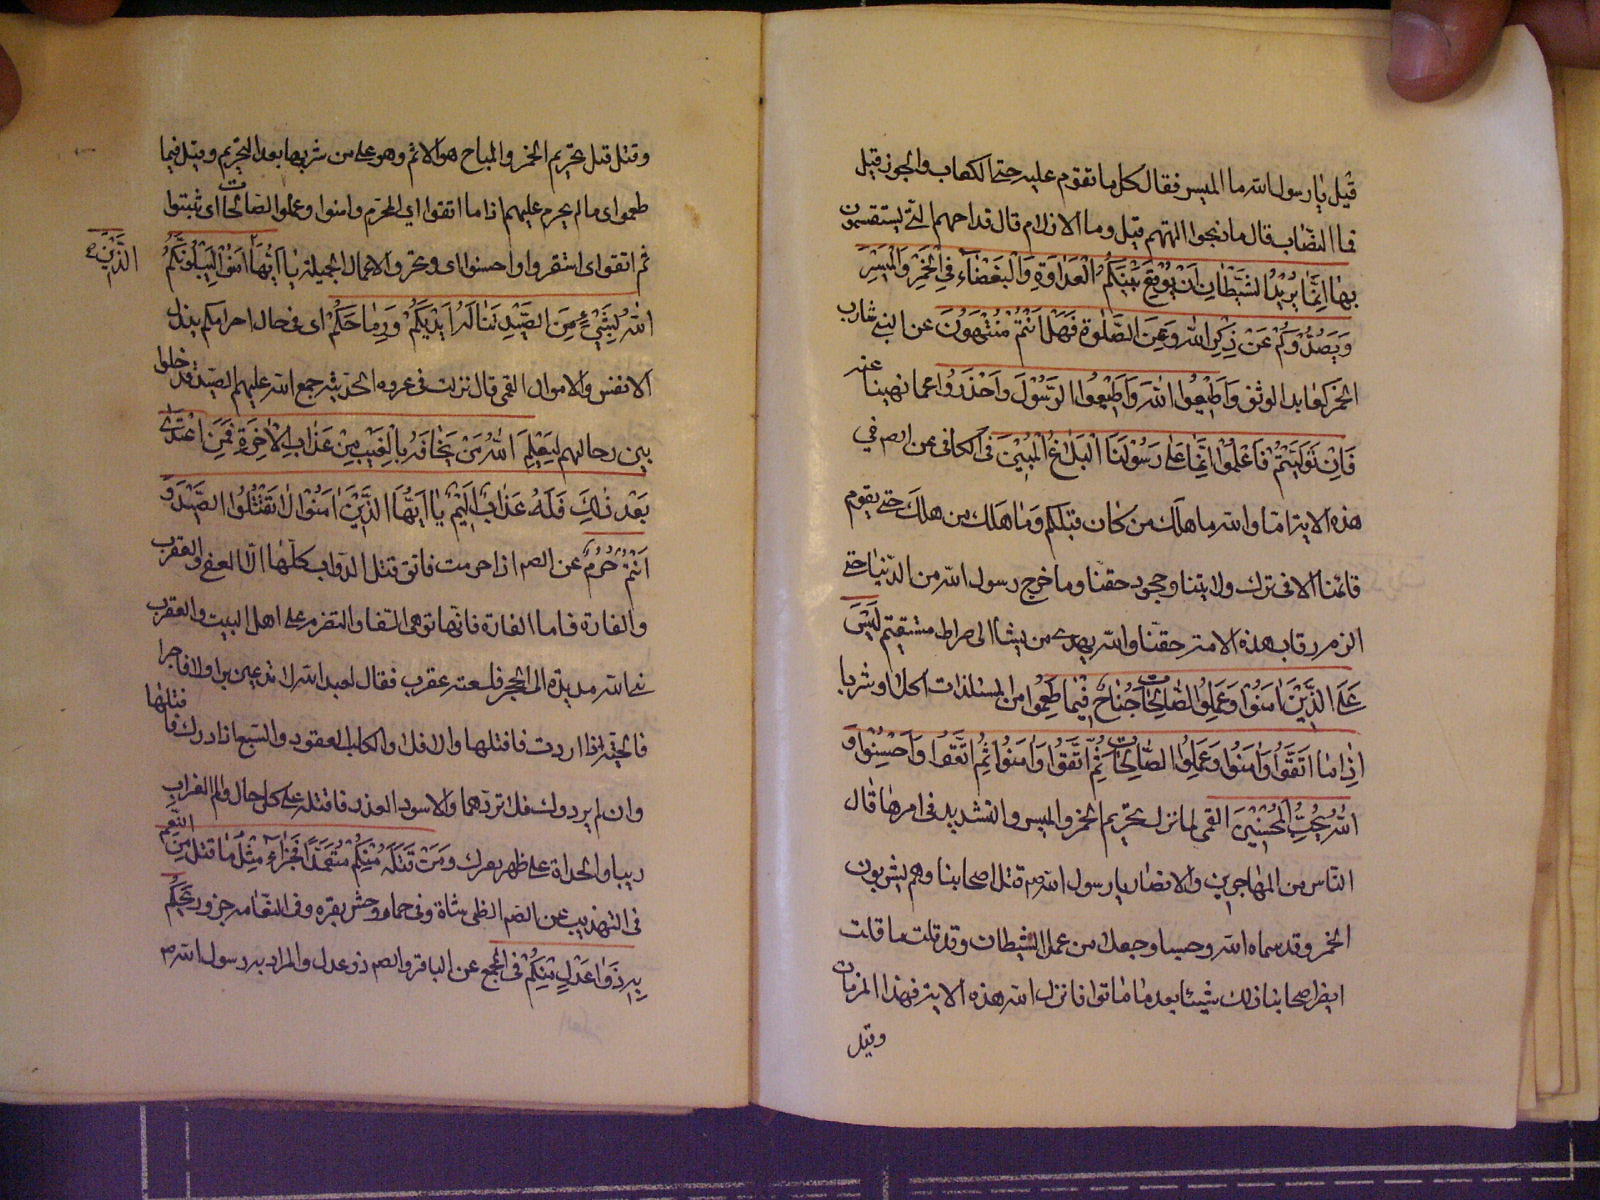 قيل يا رسول الله ما الميسر فقال كل ما تقوم عليه حتى الكعاب والجوز قيل
فما النصاب قال ما ذبحوا لالهتهم قيل وما الازلام قال قداحهم التي يستقسمون
بها اِنَّمَا يُرِيْدُ الشَّيْطَانُ اَنْ يُوْقِعَ بَيْنَكُمُ الْعَدَاوَةَ وَالْبَغْضَاءَ فِي الْخَمْرِ وَالْمَيْسِرِ
وَيَصُدَّكُمْ عَنْ ذِكْرِ اللهِ وَعَنِ الصَّلٰوةِ فَهَلْ اَنْتُمْ مُنْتَهُوْنَ عن النبي شارب
الخمر كعابد الوثن وَاَطِيْعُوا اللهَ وَاَطِيْعُوا الرَّسُوْلَ وَاحْذَرُوْا عما نهينا عنه
فَاِنْ تَوَلَّيْتُمْ فَاعْلَمُوْا اَنَّمَا عَلٰى رَسُوْلِنَا الْبَلَاغُ الْمُبِيْنُ في الكافي عن الصم في
هذه الاية اما والله ما هلك من كان قبلكم وما هلك من هلك حتى يقوم
قائمنا الا في ترك ولايتنا وجحود حقنا وما خرج رسول الله من الدنيا حتى
الزم رقاب هذه الامة حقنا والله يهدي من يشا الى صراط مستقيم لَيْسَ
عَلَى الَّذِيْنَ اٰمَنُوْا وَعَمِلُوا الصَّالِحَاتِ جُنَاحٌ فِيْمَا طَعِمُوا من المستلذات اكلا وشربا
اِذَا مَا اتَّقَوْا وَاٰمَنُوْا وَعَمِلُوا الصَّالِحَاتِ ثُمَّ اتَّقَوْا وَاٰمَنُوْا ثُمَّ اتَّقَوْا وَاَحْسَنُوْا وَ
اللهُ يُحِبُّ الْمُحْسِنِيْنَ القمي لما نزل تحريم الخمر والميسر والتشديد في امرها قال
الناس من المهاجرين والانصار يا رسول الله ص قتل اصحابنا وهم يشربون
الخمر وقد سماه الله رجسا وجعله من عمل الشيطان وقد قلت ما قلت
ايضر اصحابنا ذلك شيئا بعد ما ماتوا فانزل الله هذه الاية فهذا لمن مات
وقتل
وقتل قبل تحريم الخمر والمباح هو الاثم وهو على من شربها بعد التحريم وقيل فيما
طعموا اي مالم يحرم عليهم اذا ما اتقوا اي المحرم وامنوا وعملوا الصالحات اي ثبتوا
ثم اتقوا اي استقروا واحسنوا اي وتحروا الاعمال الجميلة يَا اَيُّهَا اٰمَنُوْا لَيَبْلُوَنَّكُمُ
الَّذِيْنَ
اللهُ بِشَيْءٍ مِنَ الصَّيْدِ تَنَالُهُ اَيْدِيْكُمْ وَرِمَاحُكُمْ اي في حال احرامكم ببذل
الانفس والاموال القمي قال نزلت في الحديبية جمع الله عليهم الصيد فدخلوا
بين رحالهم لِيَعْلَمَ اللهُ مَنْ يَخَافُهُ بِالْغَيْبِ مِنْ عَذَابِ الْاٰخِرَةِ فَمَنِ اعْتَدٰى
بَعْدَ ذٰلِكَ فَلَهُ عَذَابٌ اَلِيْمٌ يَا اَيُّهَا الَّذِيْنَ اٰمَنُوْا لَا تَقْتُلُوا الصَّيْدَ وَ
اَنْتُمْ حُرُمٌ عن الصم اذا حرمت فاتق قتل الدواب كلها الا الافعي والعقرب
والفارة فاما الفارة فانها توهي السقا والتضرم على اهل البيت والعقرب
نبي الله مد يده الى الحجر فلسعته عقرب فقال لعبد الله لا تدعين برا ولا فاجرا
فالحية اذا اردت فاقتلها والا فلا والكلب العقور والسبع اذا ارادك فاقتلها
وان لم يردوك فلا تردهما والاسود الغدر فاقتله على كل حال وارم الغراب
رميا والحداة على ظهر بعيرك وَمَنْ قَتَلَهُ مِنْكُمْ مُتَعَمِّدًا فَجَزَاءٌ مِثْلُ مَا قَتَلَ مِنَ النَّعَمِ
في التهذيب عن الصم الظبي شاة وفي حمار وحش بقره وفي النعامه جزور يَحْكُمُ
بِهِ ذَوَا عَدْلٍ مِنْكُمْ في المجمع عن الباقر والصم ذو عدل والمراد به رسول الله ص